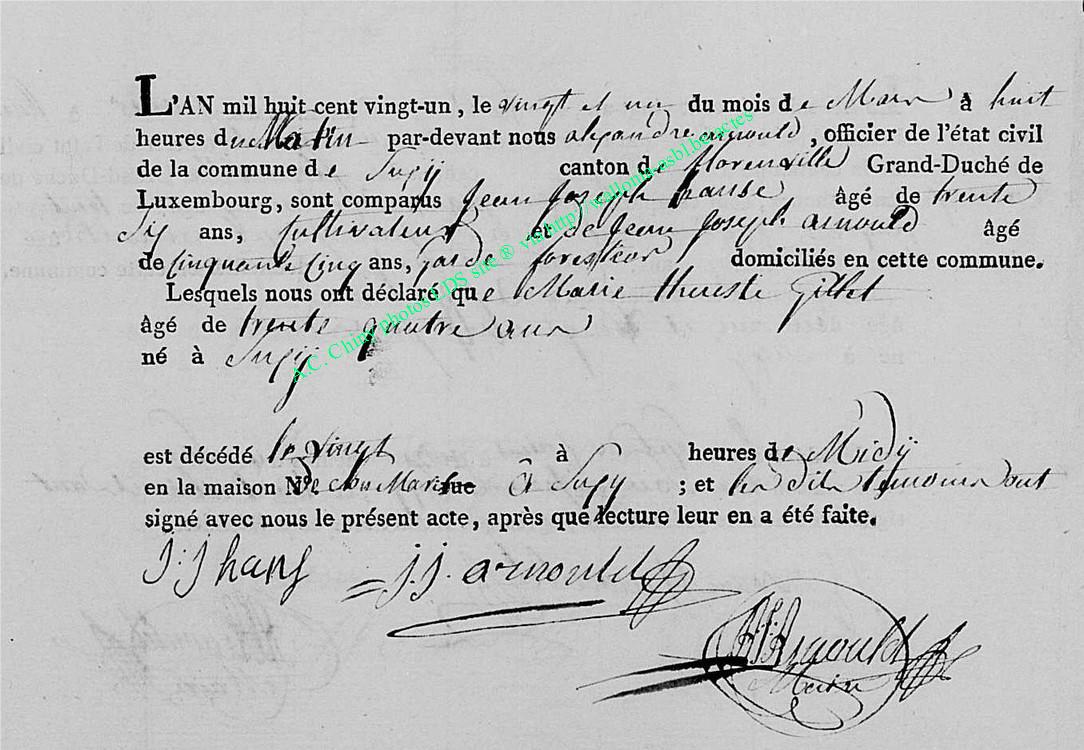 L'AN mil huit cent vingt-un, le vingt et un du mois de Mars à huit
heures du Matin par-devant nous alexandre arnould, officier de l'état civil
de la commune de Sugÿ canton de florenville Grand-Duché de
Luxembourg, sont comparus Jean Joseph hanse âgé de trente
Six ans, Cultivateur et de Jean Joseph arnould âgé
de Cinquante Cinq ans, garde forestier domiciliés en cette commune.
Lesquels nous ont déclaré que Marie thereste Gillet
âgé de trente quatre ans
né à Sugÿ
est décédé le vingt à heures de Midÿ
en la maison N° de son Mari rue à Sugy ; et les dits temoins ont
signé avec nous le présent acte, après que lecture leur en a été faite.
J: J hans J. J. arnould
Arnould
Maire
A.C. Chiny photos LDS site ® via http/ wallonia-asbl.be/actes